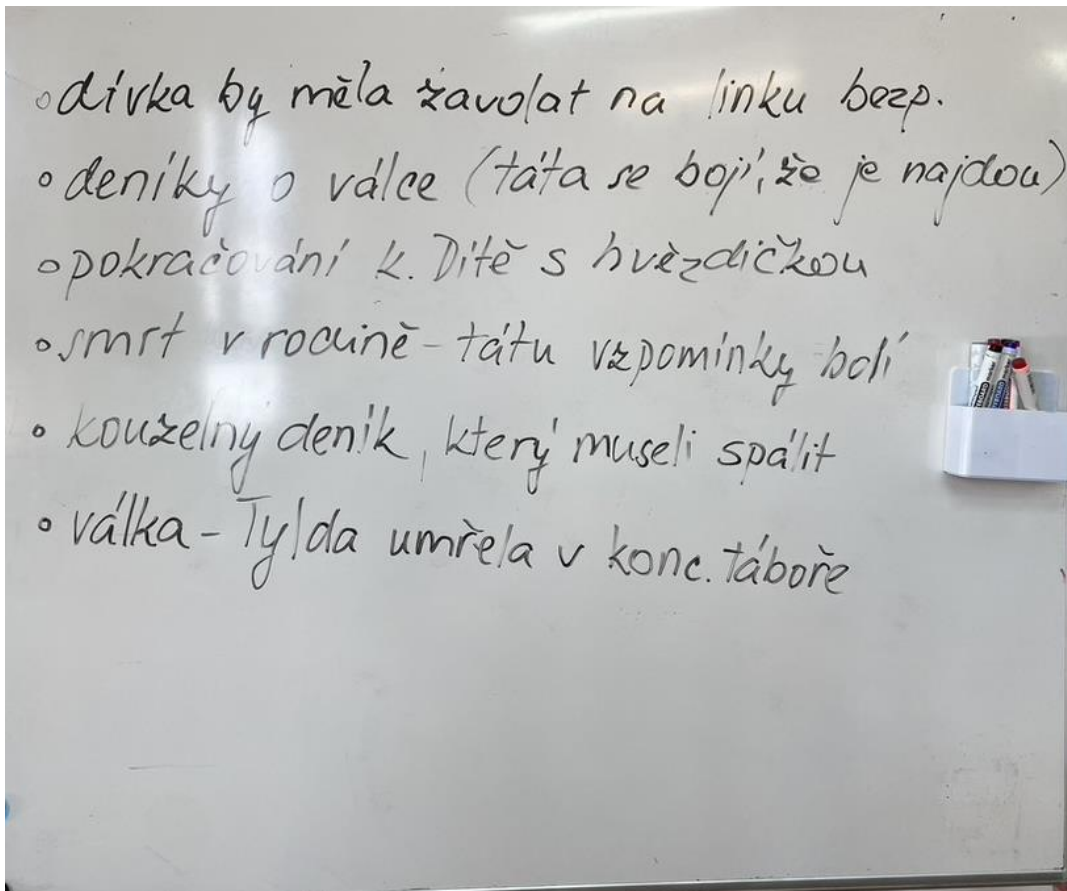 ◦ dívka by měla zavolat na linku bezp.
◦ deníky o válce (táta se bojí, že je najdou)
◦ pokračování k. Dítě s hvězdičkou
◦ smrt v rodině - tátu vzpomínky bolí
◦ kouzelný deník, který museli spálit
◦ válka - Tylda umřela v konc. táboře